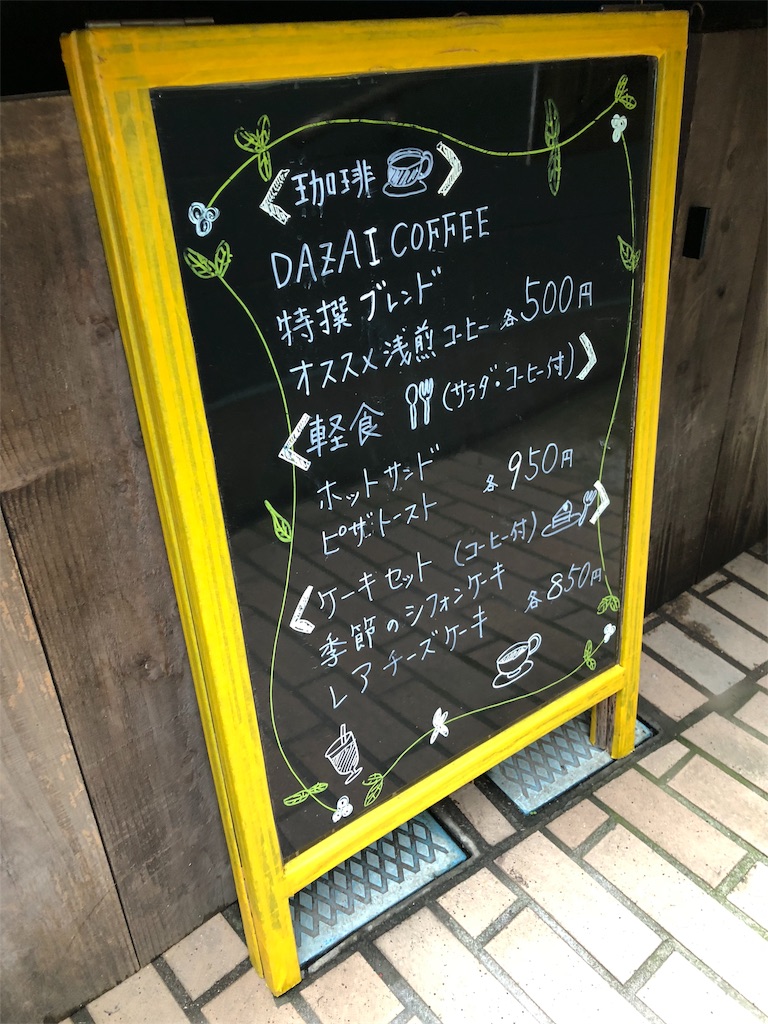 〈珈琲〉
DAZAI COFFEE
特撰ブレンド
オススメ浅煎コーヒー 各500円
〈軽食 (サラダ・コーヒー付)〉
ホットサンド
ピザトースト 各950円
〈ケーキセット (コーヒー付)〉
季節のシフォンケーキ
レアチーズケーキ 各850円